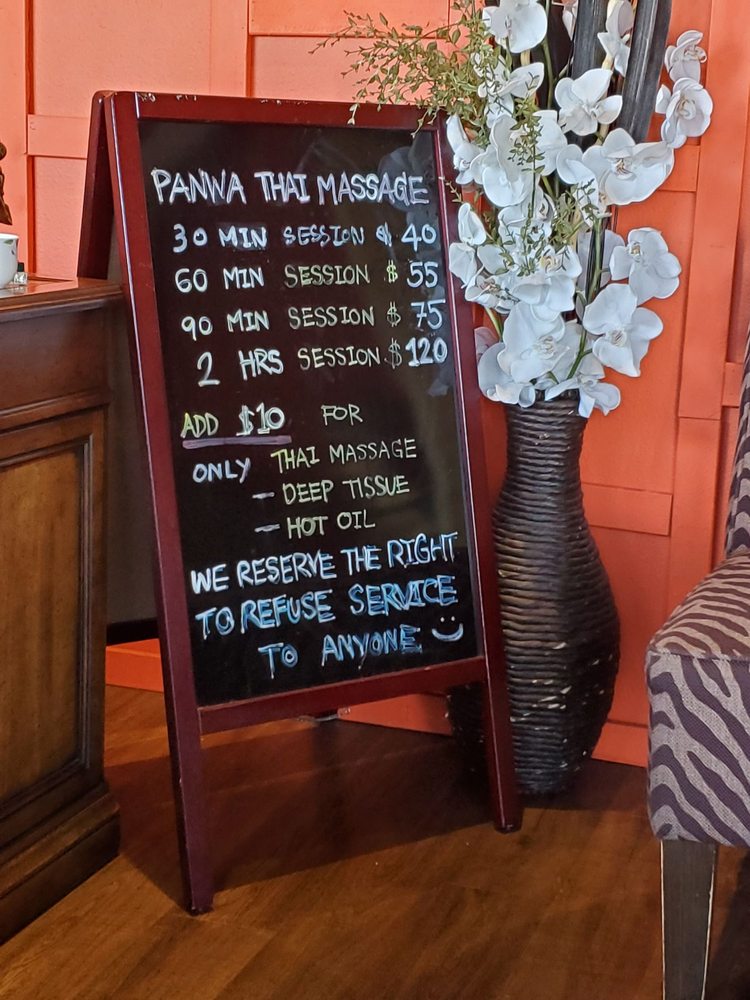 PANWA THAI MASSAGE
30 MIN SESSION $ 40
60 MIN SESSION $ 55
90 MIN SESSION $ 75
2 HRS SESSION $ 120
ADD $10 FOR
ONLY THAI MASSAGE
– DEEP TISSUE
– HOT OIL
WE RESERVE THE RIGHT
TO REFUSE SERVICE
TO ANYONE